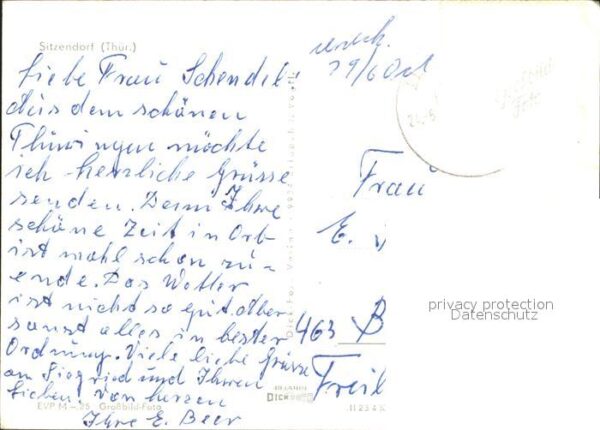 Sitzendorf (Thür.)
Liebe Frau Schendel!
Aus dem schönen
Thüringen möchte
ich herzliche Grüsse
senden. Denn Ihre
schöne Zeit in Ort
ist wohl schon zu-
ende. Das Wetter
ist nicht so gut. Aber
sonst alles in bester
Ordnung. Viele liebe Grüsse
an Siegried und Ihnen
Lieben. Von herzen
Ihre E. Beer
EVP M –.25 Großbild-Foto
79/60
24.6
Frau
E.
463 B
Freib
privacy protection
Datenschutz
II 23 4